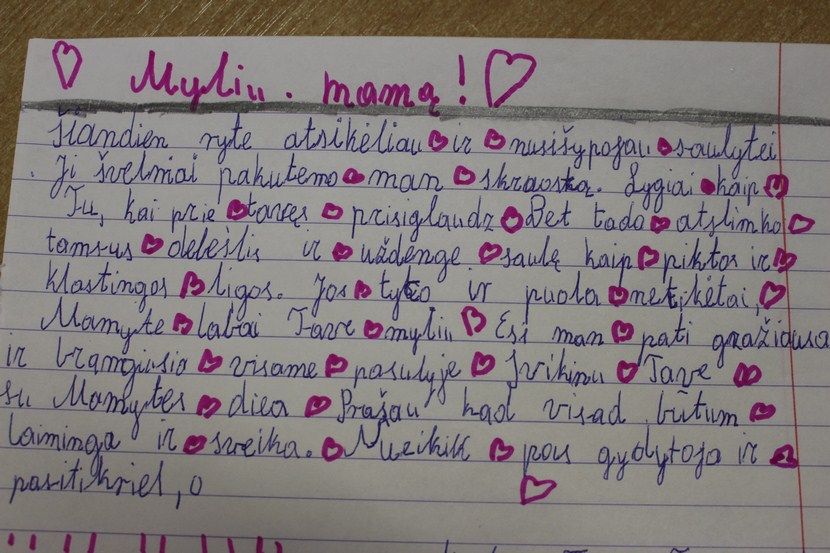 Myliu. mamą!
Šiandien ryte atsikėliau ir nusišypsojau saulytei
. Ji švelniai pakuteno man skruostą. Lygiai kaip
Tu, kai prie tavęs prisiglaudž Bet tada atslinko
tamsus debesėlis ir uždengė saulę kaip piktos ir
klastingos ligos. Jos tyko ir puola netikėtai,
Mamyte labai Tave myliu Esi man pati gražiausa
ir brangiusia visame pasulyje Sveikinu Tave
su Mamytės diea Prašau kad visad būtum
laiminga ir sveika. Nueikik pas gydytoja ir
pasitikriel, o